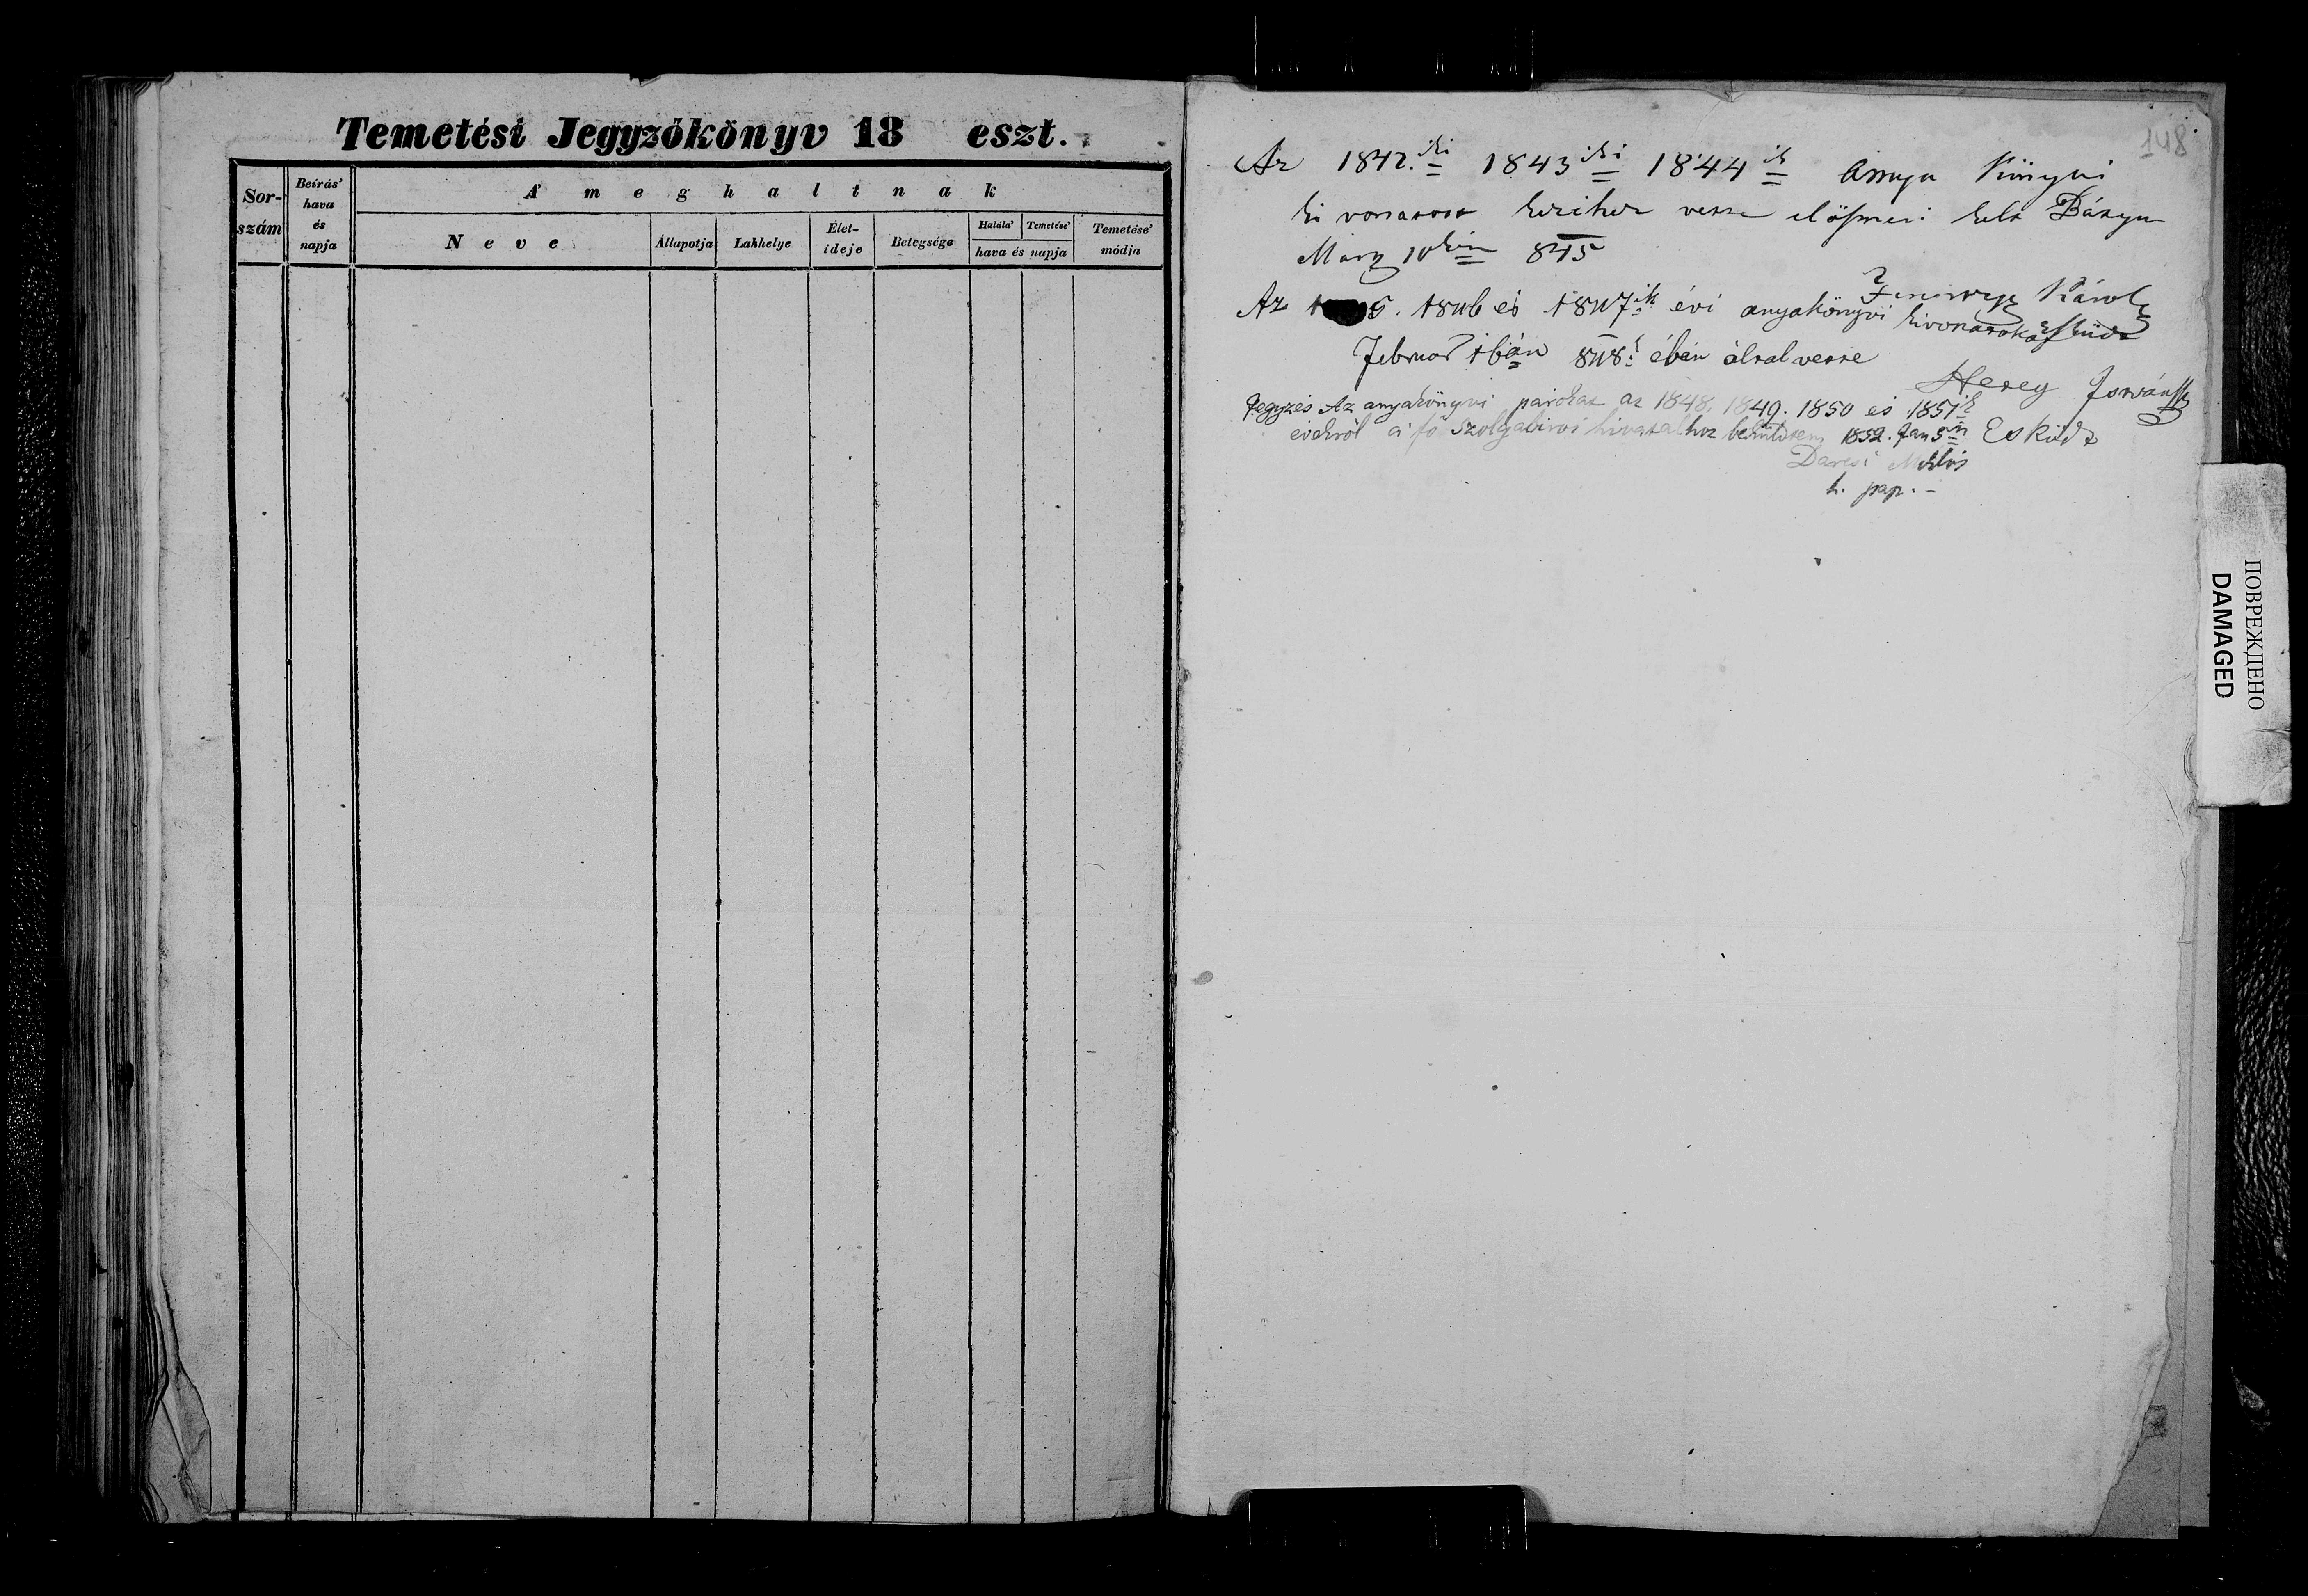 Temetési Jegyzőkönyv 18 eszt.
Sor-szám
Beírás' hava és napja
A' meghaltnak
Neve
Állapotja
Lakhelye
Élet-ideje
Betegsége
Halála'
Temetése'
hava és napja
Temetése' módja
148
Az 1842.iki 1843iki 1844ik Annya Könyvi
ki vonatott kezihez vette
Márz 10kén 845
Károly
Az 5. 1846 és 1847ik évi anyakönyvi kivonatokat Esküdt
Februar 16án 848 ében által vette
Hetey István
Jegyzés Az anyakönyvi párokat az 1848, 1849. 1850 és 1851ik
évekről a' fő szolgabirói hivatalhoz beküldtem 1852. Jan 5én Esküdt
Daresi Miklós
h. pap. -
ПОВРЕЖДЕНО
DAMAGED